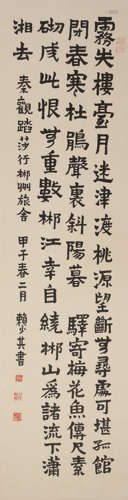 霧失樓臺月迷津渡桃源望斷無尋處可堪孤館
閉春寒杜鵑聲裏斜陽暮 驛寄梅花魚傳尺素
砌成此恨無重數郴江幸自繞郴山為誰流下瀟
湘去 秦觀踏莎行郴州旅舍 甲子春二月 賴少其書